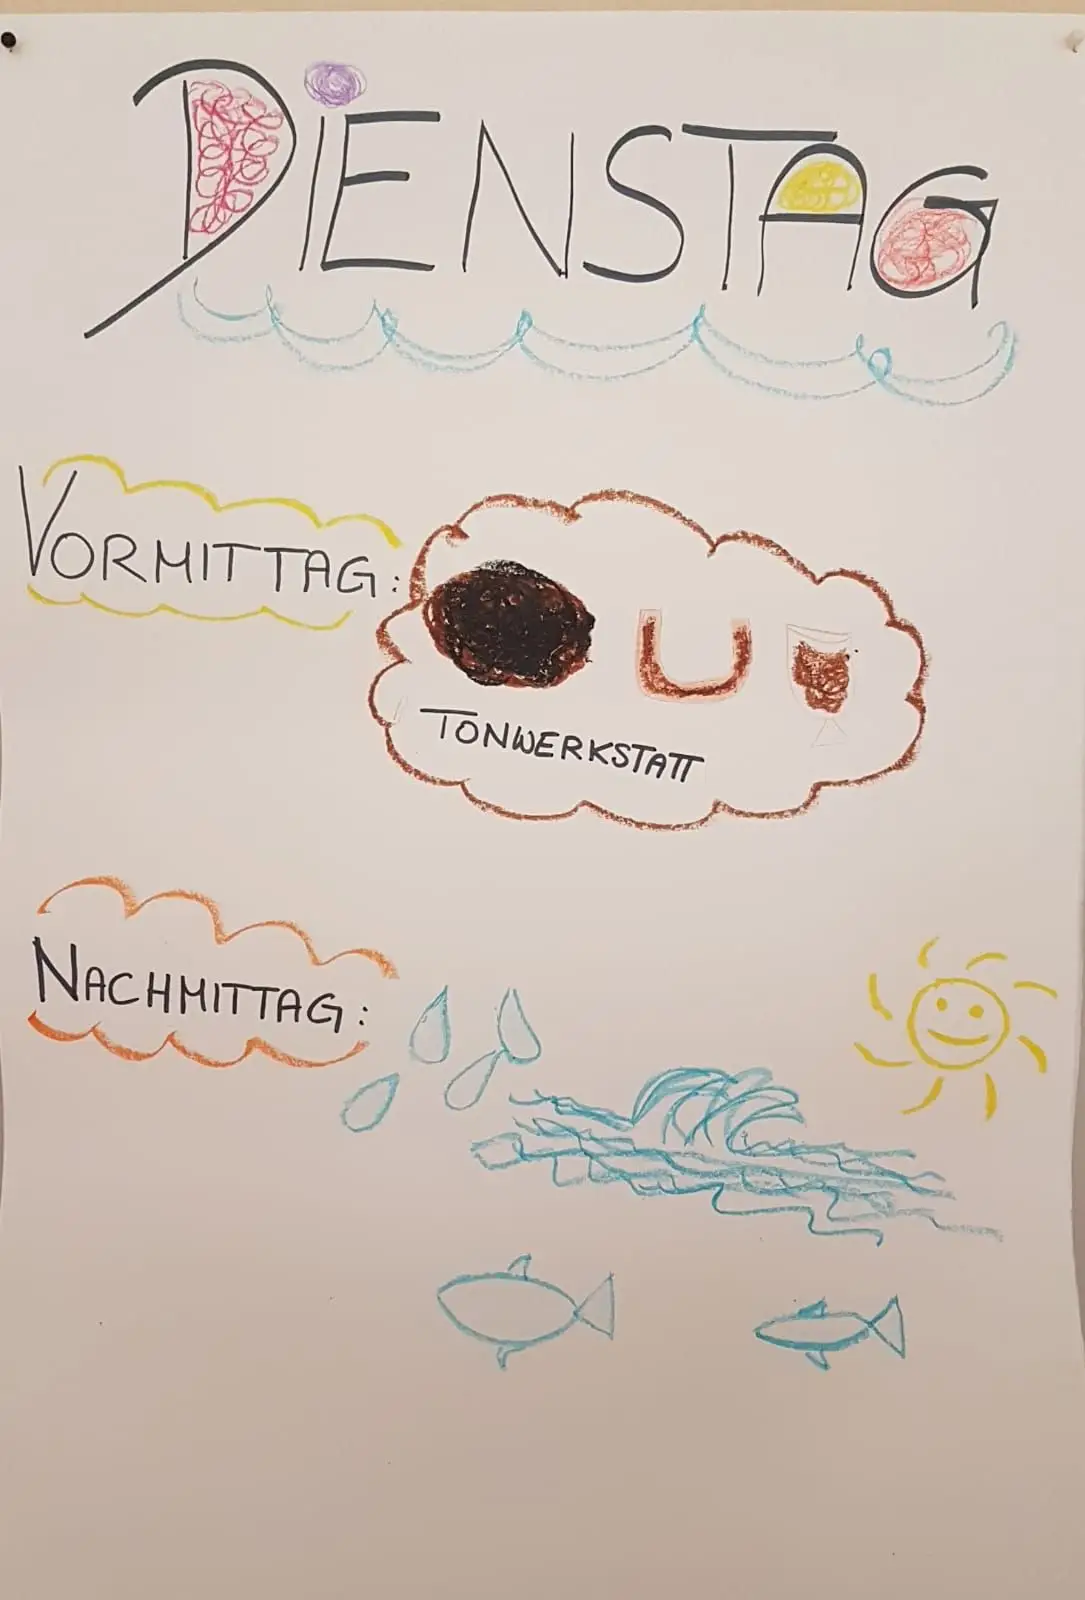 DIENSTAG
VORMITTAG:
TONWERKSTATT
NACHMITTAG: